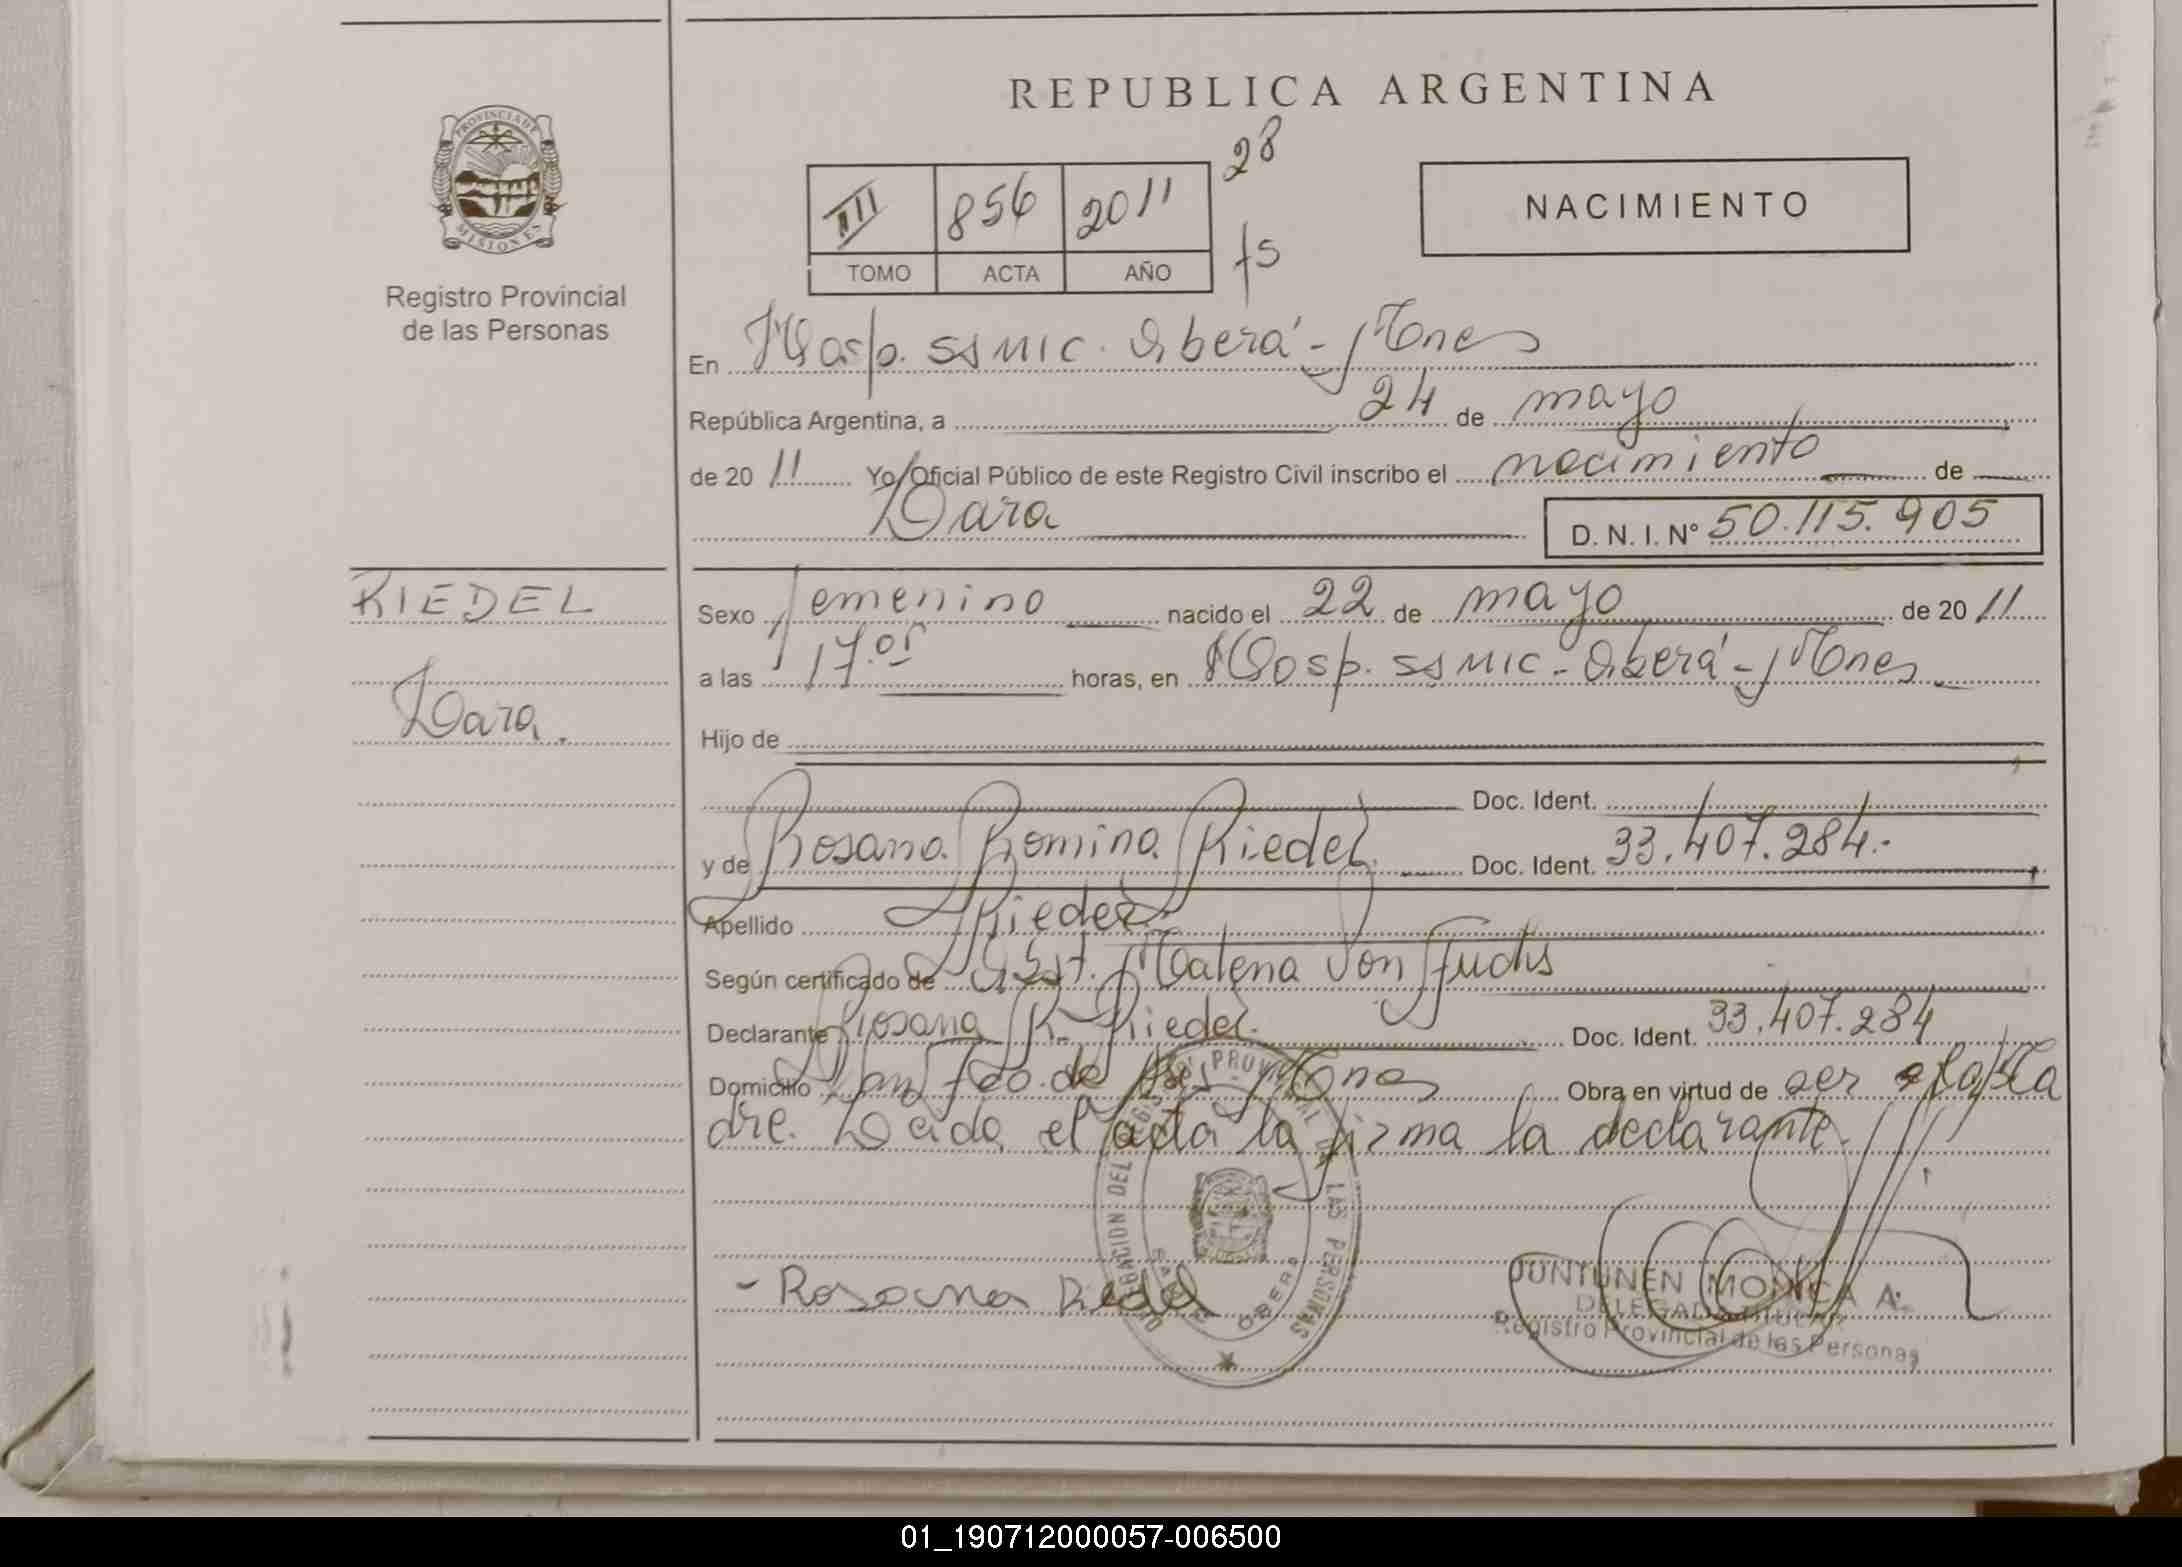 REPUBLICA ARGENTINA
PROVINCIA DE
MISIONES
Registro Provincial
de las Personas
III 856 2011 28
TOMO ACTA AÑO fs
NACIMIENTO
En Hosp. SSMIC. Oberá - Mnes
República Argentina, a 24 de mayo
de 2011 Yo Oficial Público de este Registro Civil inscribo el nacimiento de
Dara D. N. I. N° 50.115.905
RIEDEL
Dara.
Sexo femenino nacido el 22 de mayo de 2011
a las 17.05 horas, en Hosp. SSMIC - Oberá - Mnes
Hijo de
Doc. Ident.
y de Rosana Romina Riedel Doc. Ident. 33.407.284.-
Apellido Riedel
Según certificado de Obst. Malena Von Fuchs
Declarante Rosana R. Riedel. Doc. Ident. 33.407.284
Domicilio Mnes Obra en virtud de ser la
dre. Leida el acta la firma la declarante.
DELEGACION DEL REGISTRO PROVINCIAL DE LAS PERSONAS
OBERA
- Rosana Riedel
JUNTUNEN MONICA A.
DELEGADA TITULAR
Registro Provincial de las Personas
01_190712000057-006500